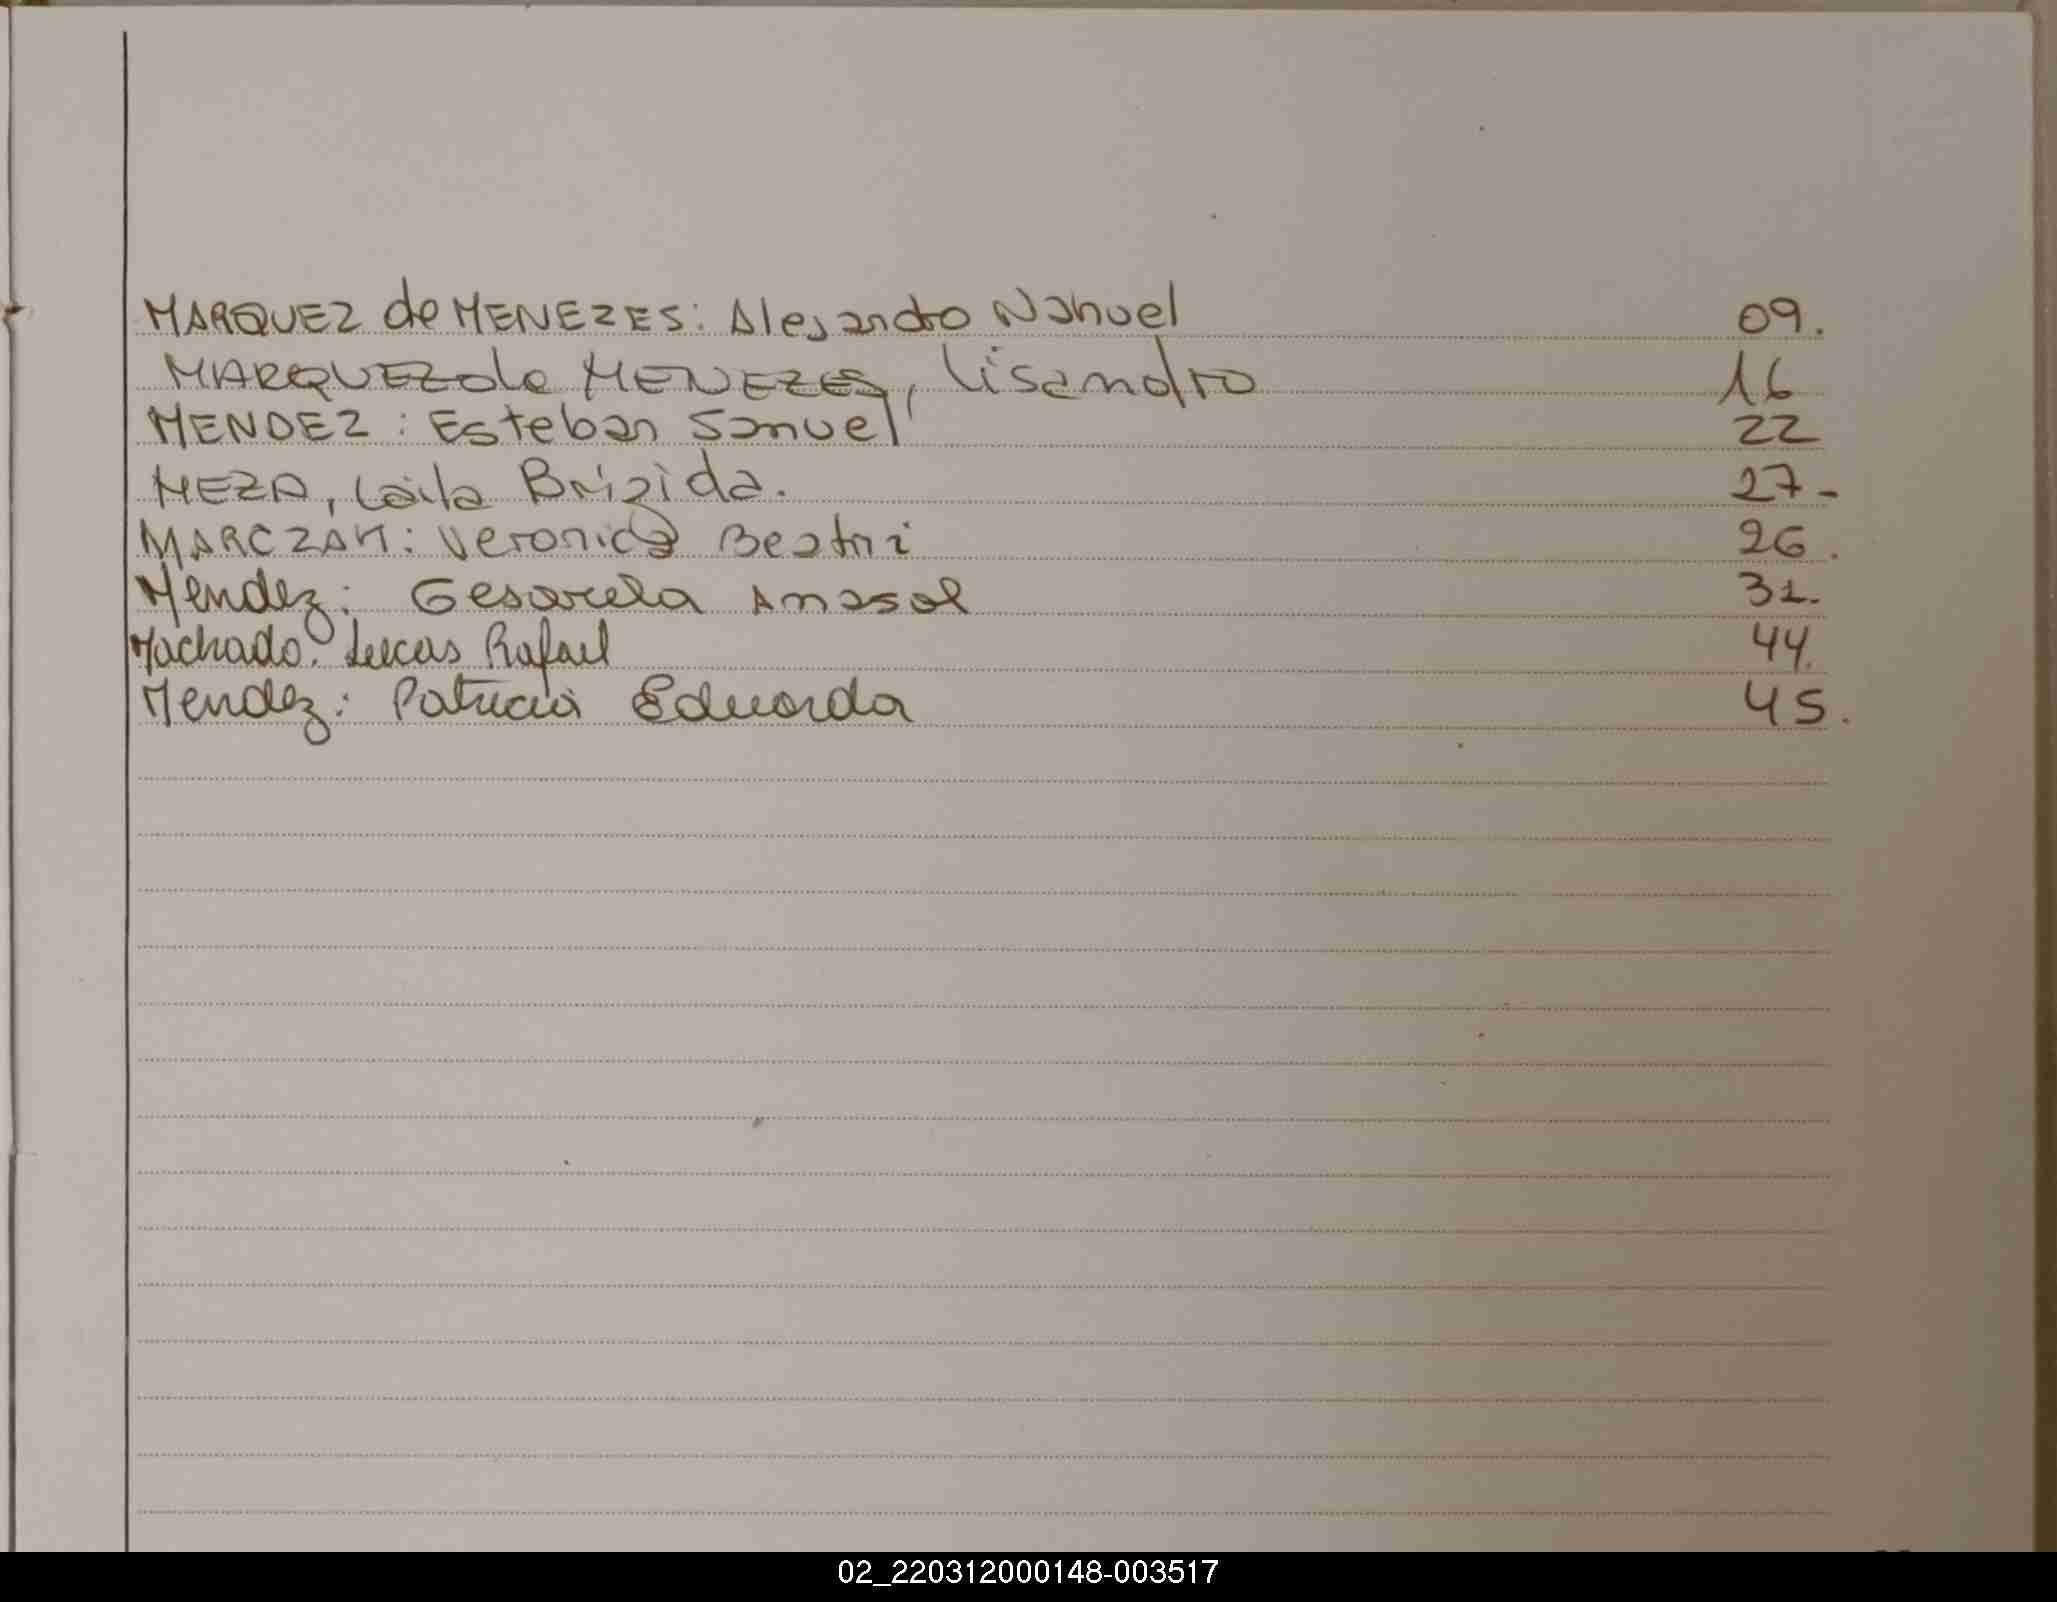 MARQUEZ de MENEZES: Alejandro Nahuel 09.
MARQUEZ de MENEZES, Lisandro 16
MENDEZ: Esteban Samuel 22
MEZA, Laila Brizida. 27-
MARCZAK: Veronica Beatri 26.
Mendez: Anasol 31.
Machado: Lucas Rafael 44.
Mendez: Patricia Eduarda 45.
02_220312000148-003517